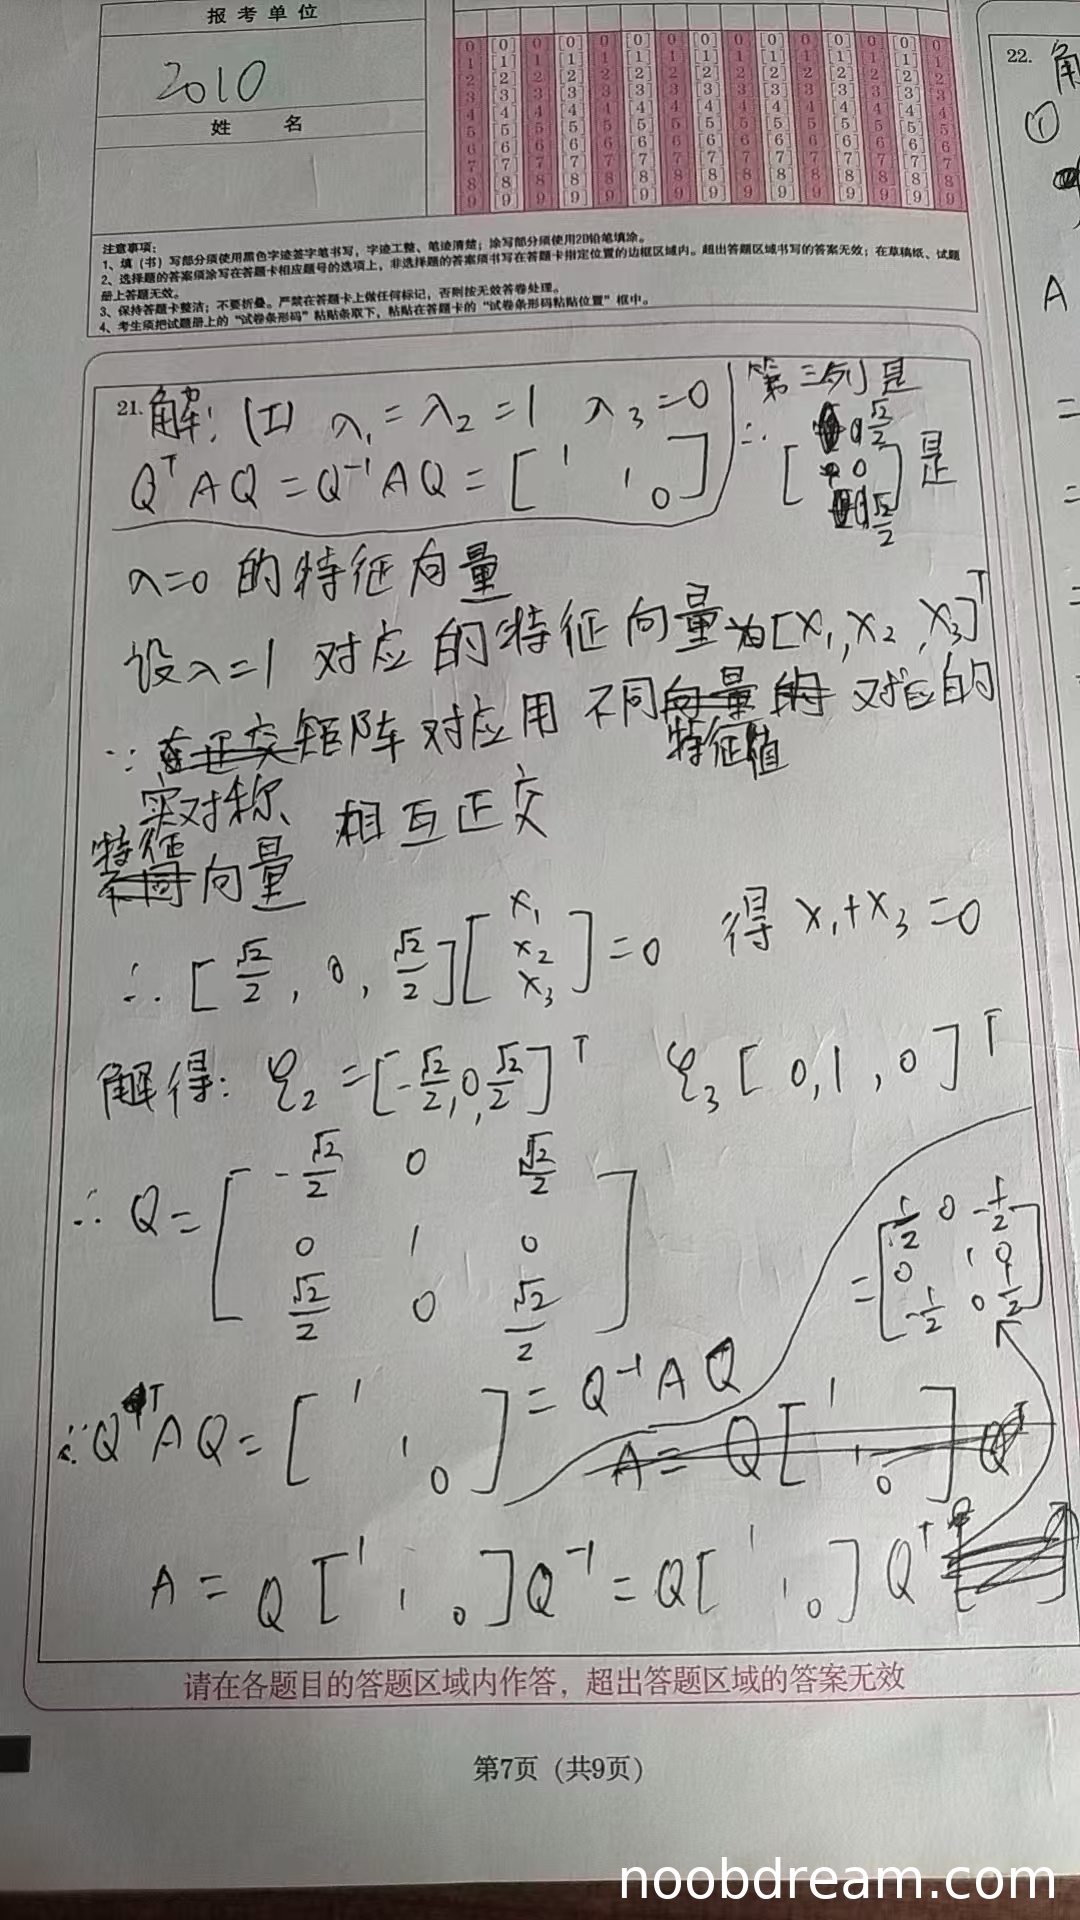 报考单位
2010
姓 名
注意事项：
1、填（书）写部分须使用黑色字迹签字笔书写，字迹工整、笔迹清楚；涂写部分须使用2B铅笔填涂。
2、选择题的答案须涂写在答题卡相应题号的选项上，非选择题的答案须书写在答题卡指定位置的边框区域内。超出答题区域书写的答案无效；在草稿纸、试题
册上答题无效。
3、保持答题卡整洁；不要折叠。严禁在答题卡上做任何标记，否则按无效答卷处理。
4、考生须把试题册上的“试卷条形码”粘贴条取下，粘贴在答题卡的“试卷条形码粘贴位置”框中。
21. 解: (I) λ₁=λ₂=1 λ₃=0
QᵀAQ=Q⁻¹AQ=[1 1 0]
第三列是
∴ [√2/2 0 √2/2] 是
λ=0 的特征向量
设λ=1 对应的特征向量为[x₁,x₂,x₃]ᵀ
∵ 实对称矩阵对应用不同特征值对应的
特征向量 相互正交
∴ [√2/2, 0, √2/2][x₁ x₂ x₃]=0 得 x₁+x₃=0
解得: ξ₂=[-√2/2,0,√2/2]ᵀ ξ₃[0,1,0]ᵀ
∴ Q=[-√2/2 0 √2/2
0 1 0
√2/2 0 √2/2]
∵QᵀAQ=[1 1 0]=Q⁻¹AQ
A=Q[1 1 0]Qᵀ
A=Q[1 1 0]Q⁻¹=Q[1 1 0]Qᵀ
=[1/2 0 -1/2
0 1 0
-1/2 0 1/2]
请在各题目的答题区域内作答，超出答题区域的答案无效
第7页（共9页）
22.
①
A
=
=
=
noobdream.com